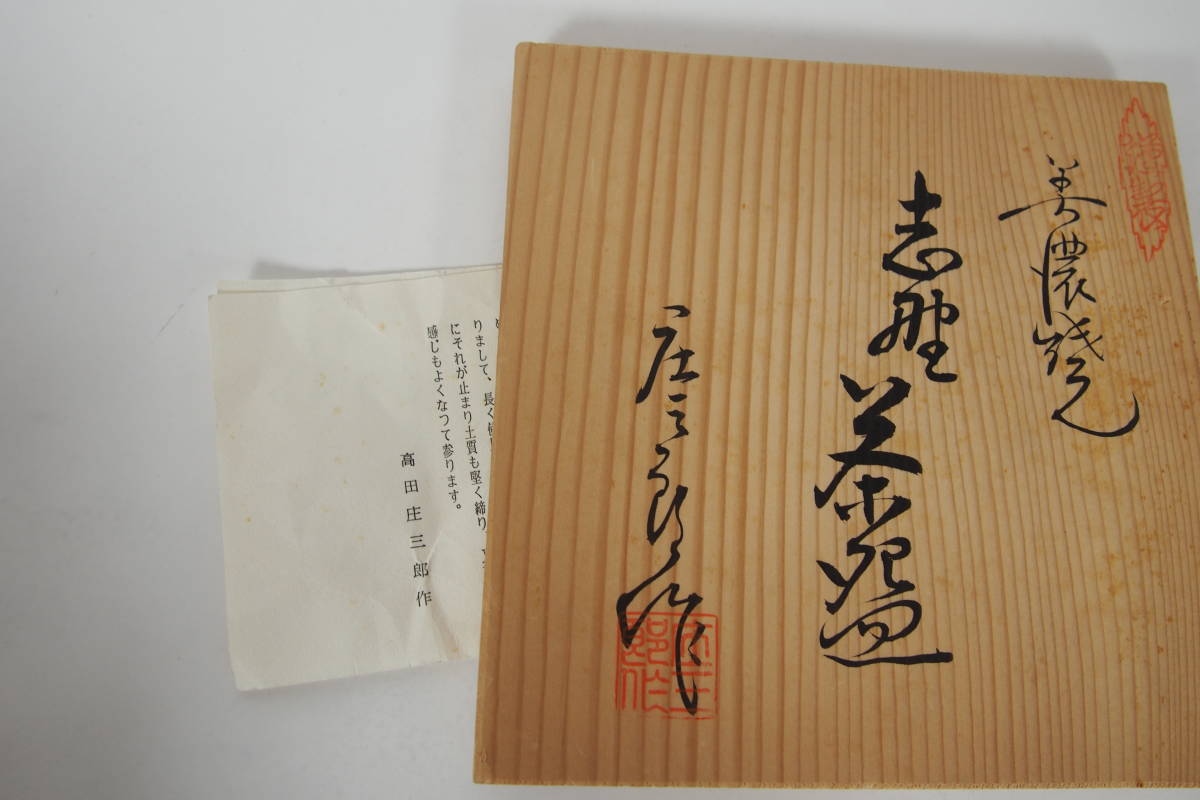 美濃焼
志野茶盌
庄三郎作
庄三郎作
りまして、長く使
にそれが止まり土質も堅く締り、
感じもよくなつて参ります。
高田庄三郎作